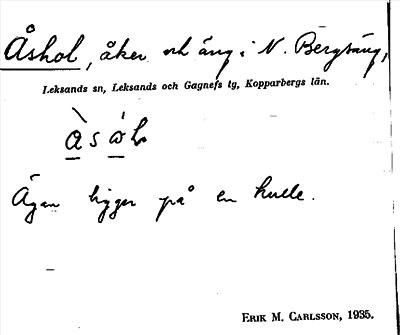 Åshol, åker och äng i N. Bergsäng,
Leksands sn, Leksands och Gagnefs tg, Kopparbergs län.
Ägan ligger på en kulle.
ERIK M. CARLSSON, 1935.